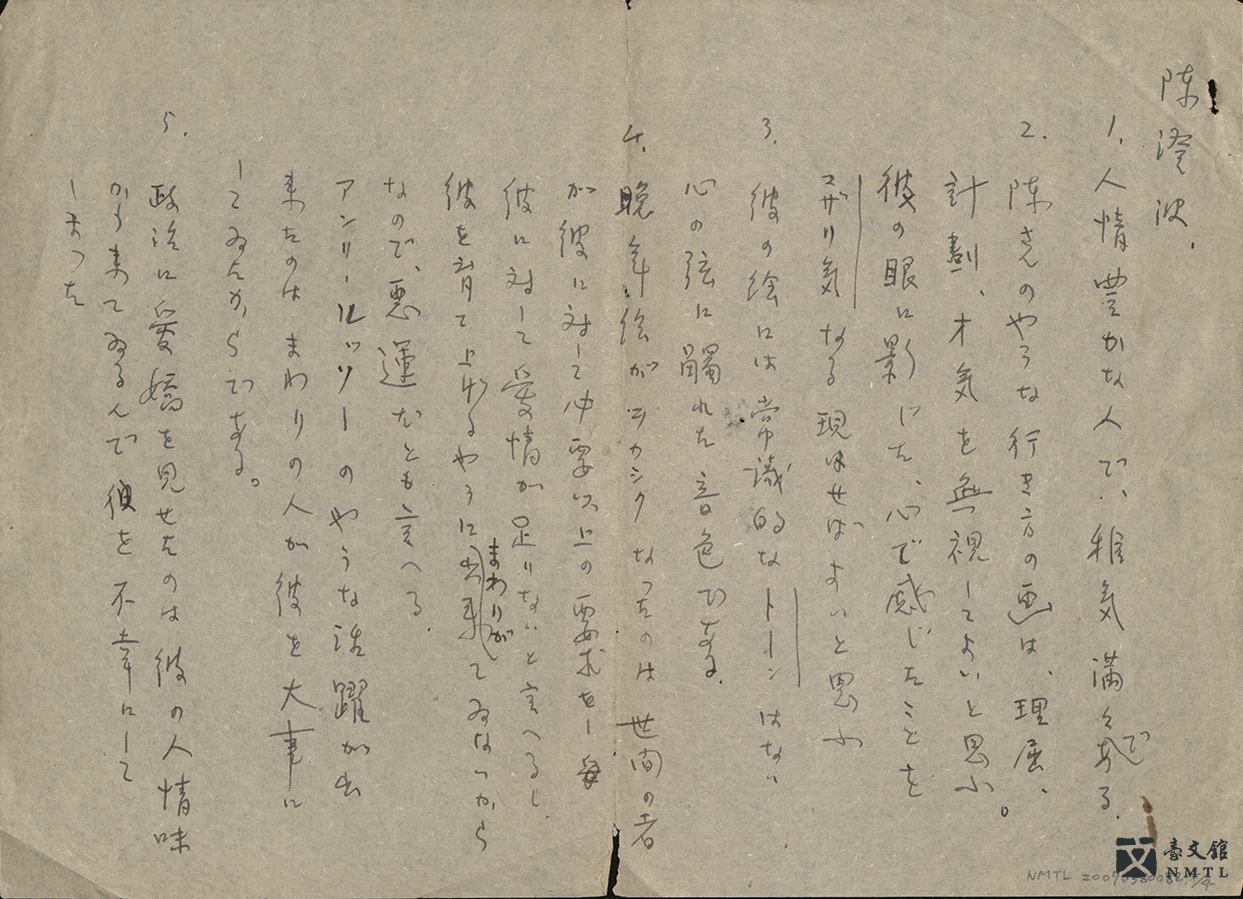 陳澄波、
1、人情豊かな人で、稚気満々である.
2. 陳さんのやうな行き方の画は、理屈、
計劃、才気を無視してよいと思ふ。
彼の眼に影じた、心で感じたことを
コザリ気なる現はせばよいと思ふ
3. 彼の絵には常識的なトーンはない
心の弦に觸れた音色である.
4、晩年絵がヲカシクなつたのは世間の者
が彼に対して必要以上の要求をし
彼に対して愛情が足りないと言へるし
彼を育て上げるやうにまわりが出来てゐないから
なので、悪運だとも言へる.
アンリールッソーのやうな活躍が出
来たのはまわりの人が彼を大事に
してゐたからである。
5. 政治に愛嬌を見せたのは彼の人情味
から来てゐるんで彼を不幸にして
しまつた
臺文館
NMTL
NMTL